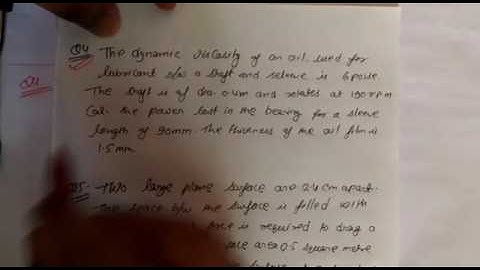 Q4 The dynamic viscosity of an oil used for
lubricant b/w a shaft and sleeve is 6 poise.
Q4 The shaft is of dia. 0.4m and rotates at 190 rpm
Cal. the power lost in the bearing for a sleeve
length of 90mm. The thickness of the oil film is
1.5mm
Q5. Two large plane surface are 2.4 cm apart.
The space b/w the surface is filled with
is required to drag a
area 0.5 square metre